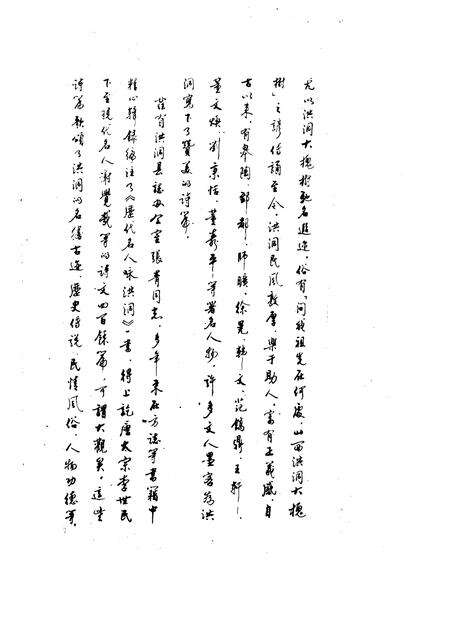 尤以洪洞大槐树驰名遐迩，俗有"问我祖先在何处，山西洪洞大槐
树"之谚传诵至今。洪洞民风敦厚，乐于助人，富有正义感，自
古以来，有皋陶、师旷、徐晃、韩文、范鄗鼎、王轩、
董文焕、刘秉恬、董寿平等著名人物，许多文人墨客为洪
洞写下了赞美的诗篇。
洪洞县志办公室张青同志，多年来在方志等书籍中
精心辑录编注了《历代名人咏洪洞》一书，得上讫唐太宗李世民
下至现代名人谢觉哉等的诗文四百余篇，可谓大观矣。这些
诗篇歌颂了洪洞的名胜古迹、历史传说、民情风俗、人物功德等，